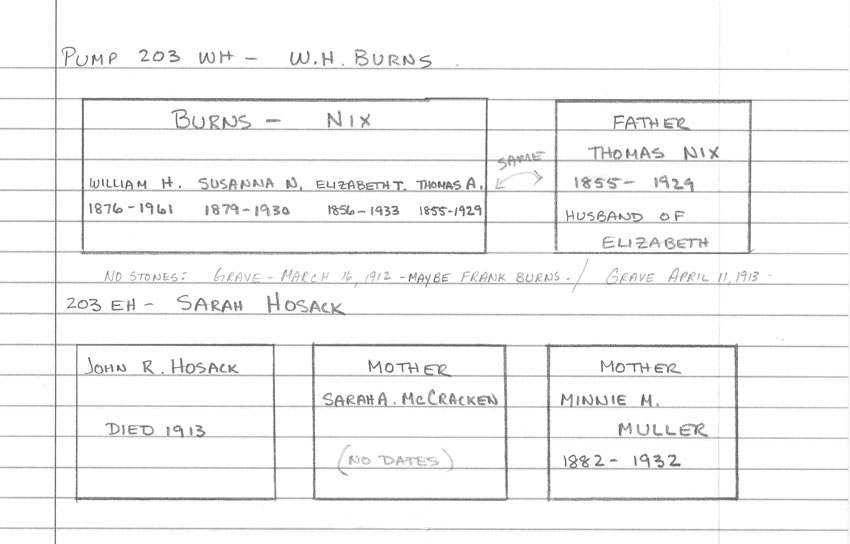 PUMP 203 WH - W.H. BURNS
BURNS - NIX
WILLIAM H. SUSANNA N. ELIZABETH T. THOMAS A.
1876-1961 1879-1930 1856-1933 1855-1929
SAME
FATHER
THOMAS NIX
1855-1929
HUSBAND OF
ELIZABETH
NO STONES: GRAVE - MARCH 16, 1912 - MAYBE FRANK BURNS. / GRAVE APRIL 11, 1913.
203 EH - SARAH HOSACK
JOHN R. HOSACK
DIED 1913
MOTHER
SARAH A. McCRACKEN
(NO DATES)
MOTHER
MINNIE M.
MULLER
1882-1932